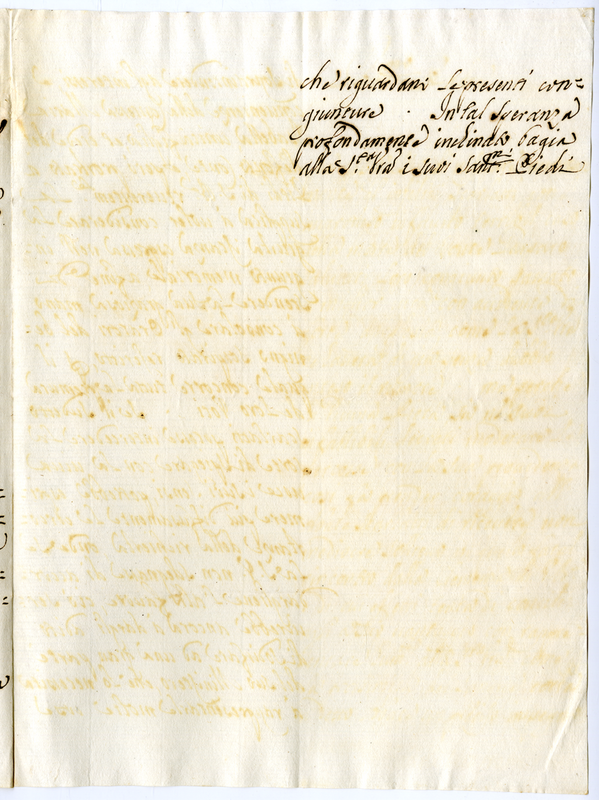 che riguardani le presenti con=
giunture. In tal speranza
profondamente inclinato bagia
alla S.tà Vra i suoi Sant.mi Piedi